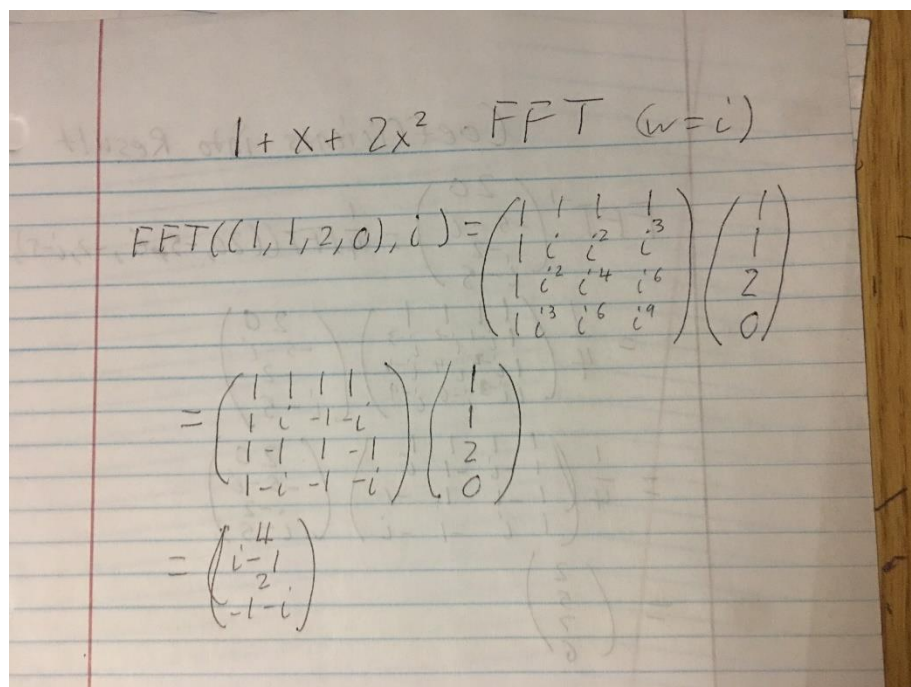 1 + x + 2x² FFT (w = i)
FFT((1, 1, 2, 0), i) = (1 1 1 1 (1
1 i i² i³ 1
1 i² i⁴ i⁶ 2
1 i³ i⁶ i⁹) 0)
= (1 1 1 1 (1
1 i -1 -i 1
1 -1 1 -1 2
1 -i -1 -i) 0)
= (4
i-1
2
-1-i)